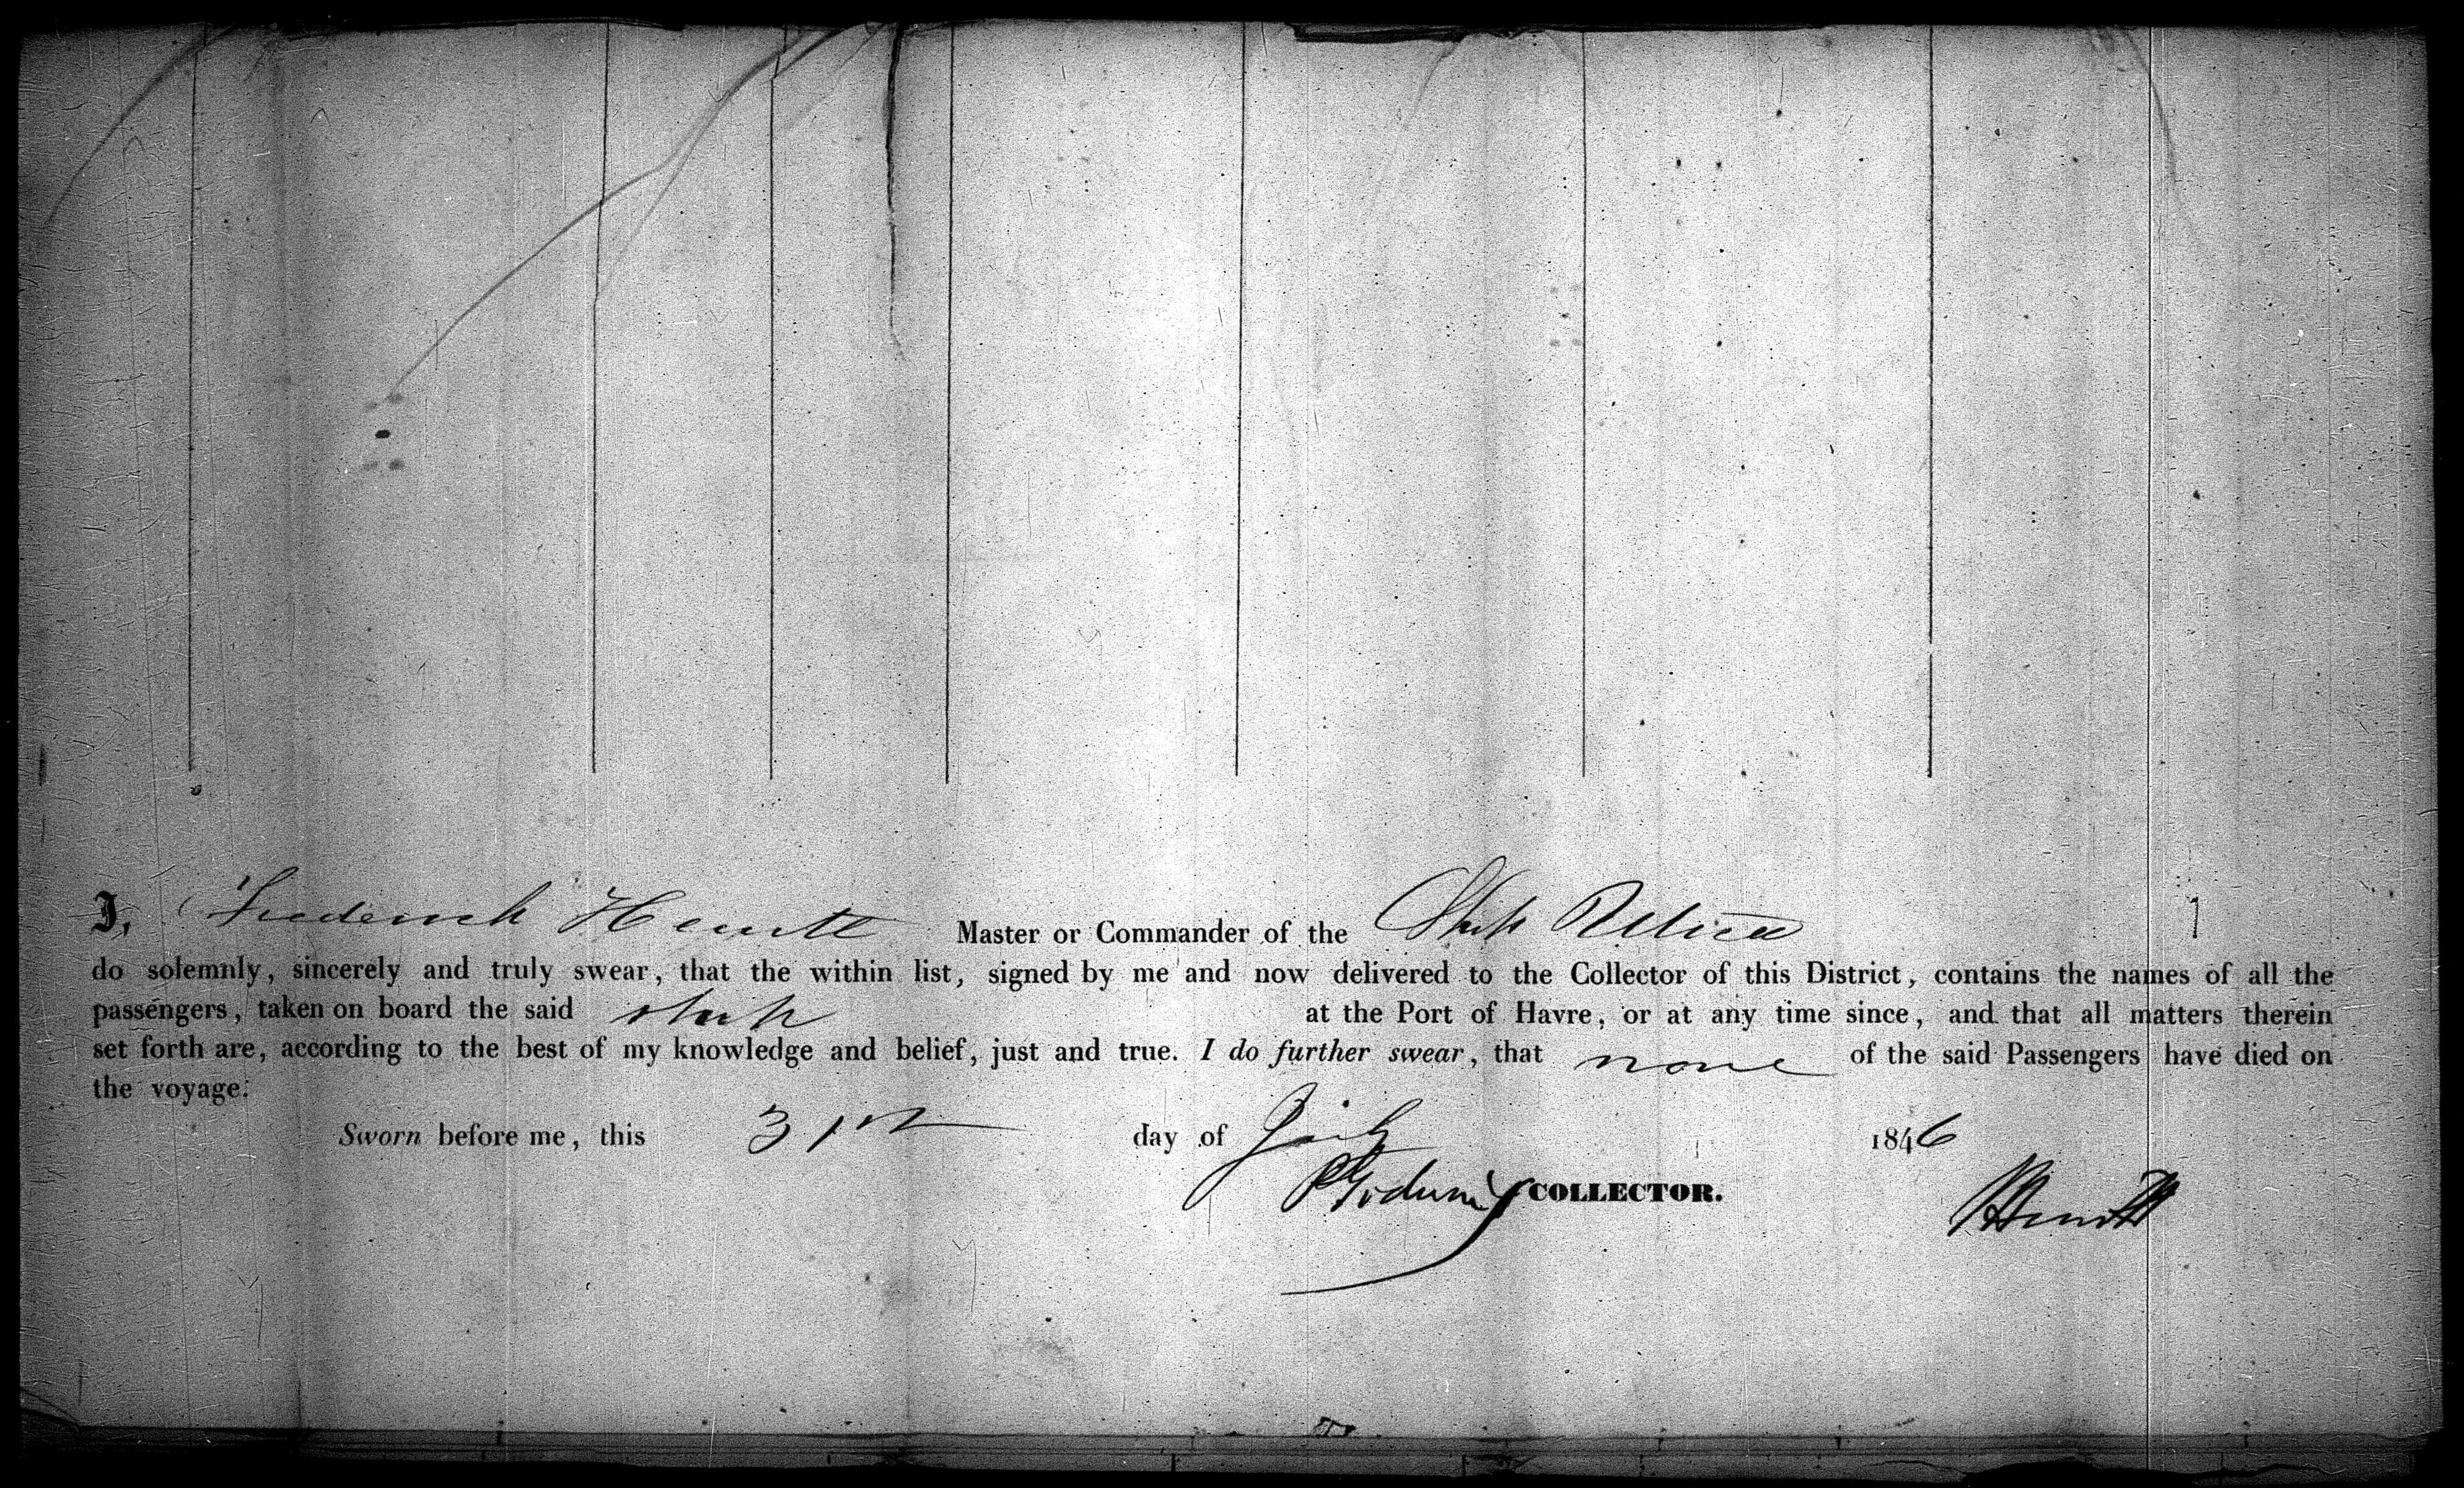 I, Frederick Hewitt Master or Commander of the Ship Utica
do solemnly, sincerely and truly swear, that the within list, signed by me and now delivered to the Collector of this District, contains the names of all the
passengers, taken on board the said ship at the Port of Havre, or at any time since, and that all matters therein
set forth are, according to the best of my knowledge and belief, just and true. I do further swear, that none of the said Passengers have died on
the voyage.
Sworn before me, this 31st day of July 1846
COLLECTOR. FHewitt